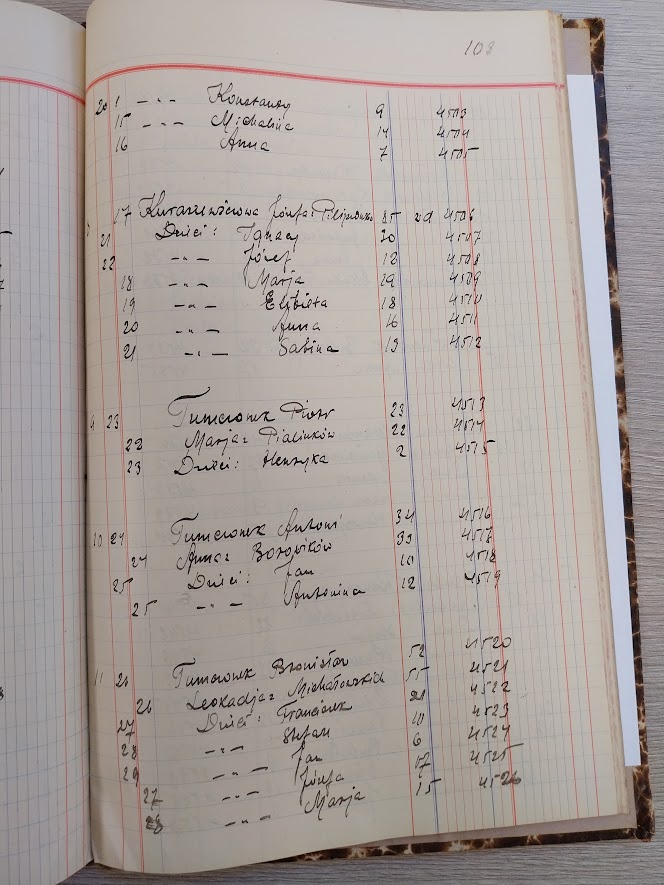 108
20 1 — „ — Konstanty 9 4503
15 — „ — Michalina 14 4504
16 Anna 7 4505
17 Kuraszewiczowa Józefa z Pilipionków 85 4506
21 Dzieci: Ignacy 20 4507
22 — „ — Józef 12 4508
18 — „ — Marja 29 4509
19 — „ — Elżbieta 18 4510
20 — „ — Anna 16 4511
21 — „ — Sabina 13 4512
9 23 Tumeronek Piotr 23 4513
22 Marja z Pialinków 22 4514
23 Dzieci: Henryka 2 4515
10 24 Tumeronek Antoni 34 4516
24 Anna z Borowików 39 4517
25 Dzieci: Jan 10 4518
25 — „ — Antonina 12 4519
11 26 Tumeronek Bronisław 52 4520
26 Leokadja z Michałowskich 55 4521
27 Dzieci: Franciszek 21 4522
28 — „ — Stefan 10 4523
29 — „ — Jan 6 4524
27 — „ — Józefa 17 4525
28 — „ — Marja 15 4526